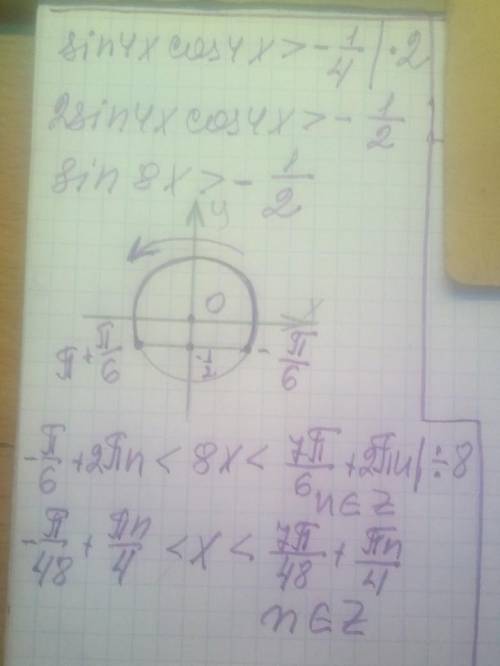 sin4x cos4x > -1/4 | ·2
2sin4x cos4x > -1/2
sin 8x > -1/2
y
0 x
π + π/6 -1/2 -π/6
-π/6 + 2πn < 8x < 7π/6 + 2πn | ÷8
n∈Z
-π/48 + πn/4 < x < 7π/48 + πn/4
n∈Z